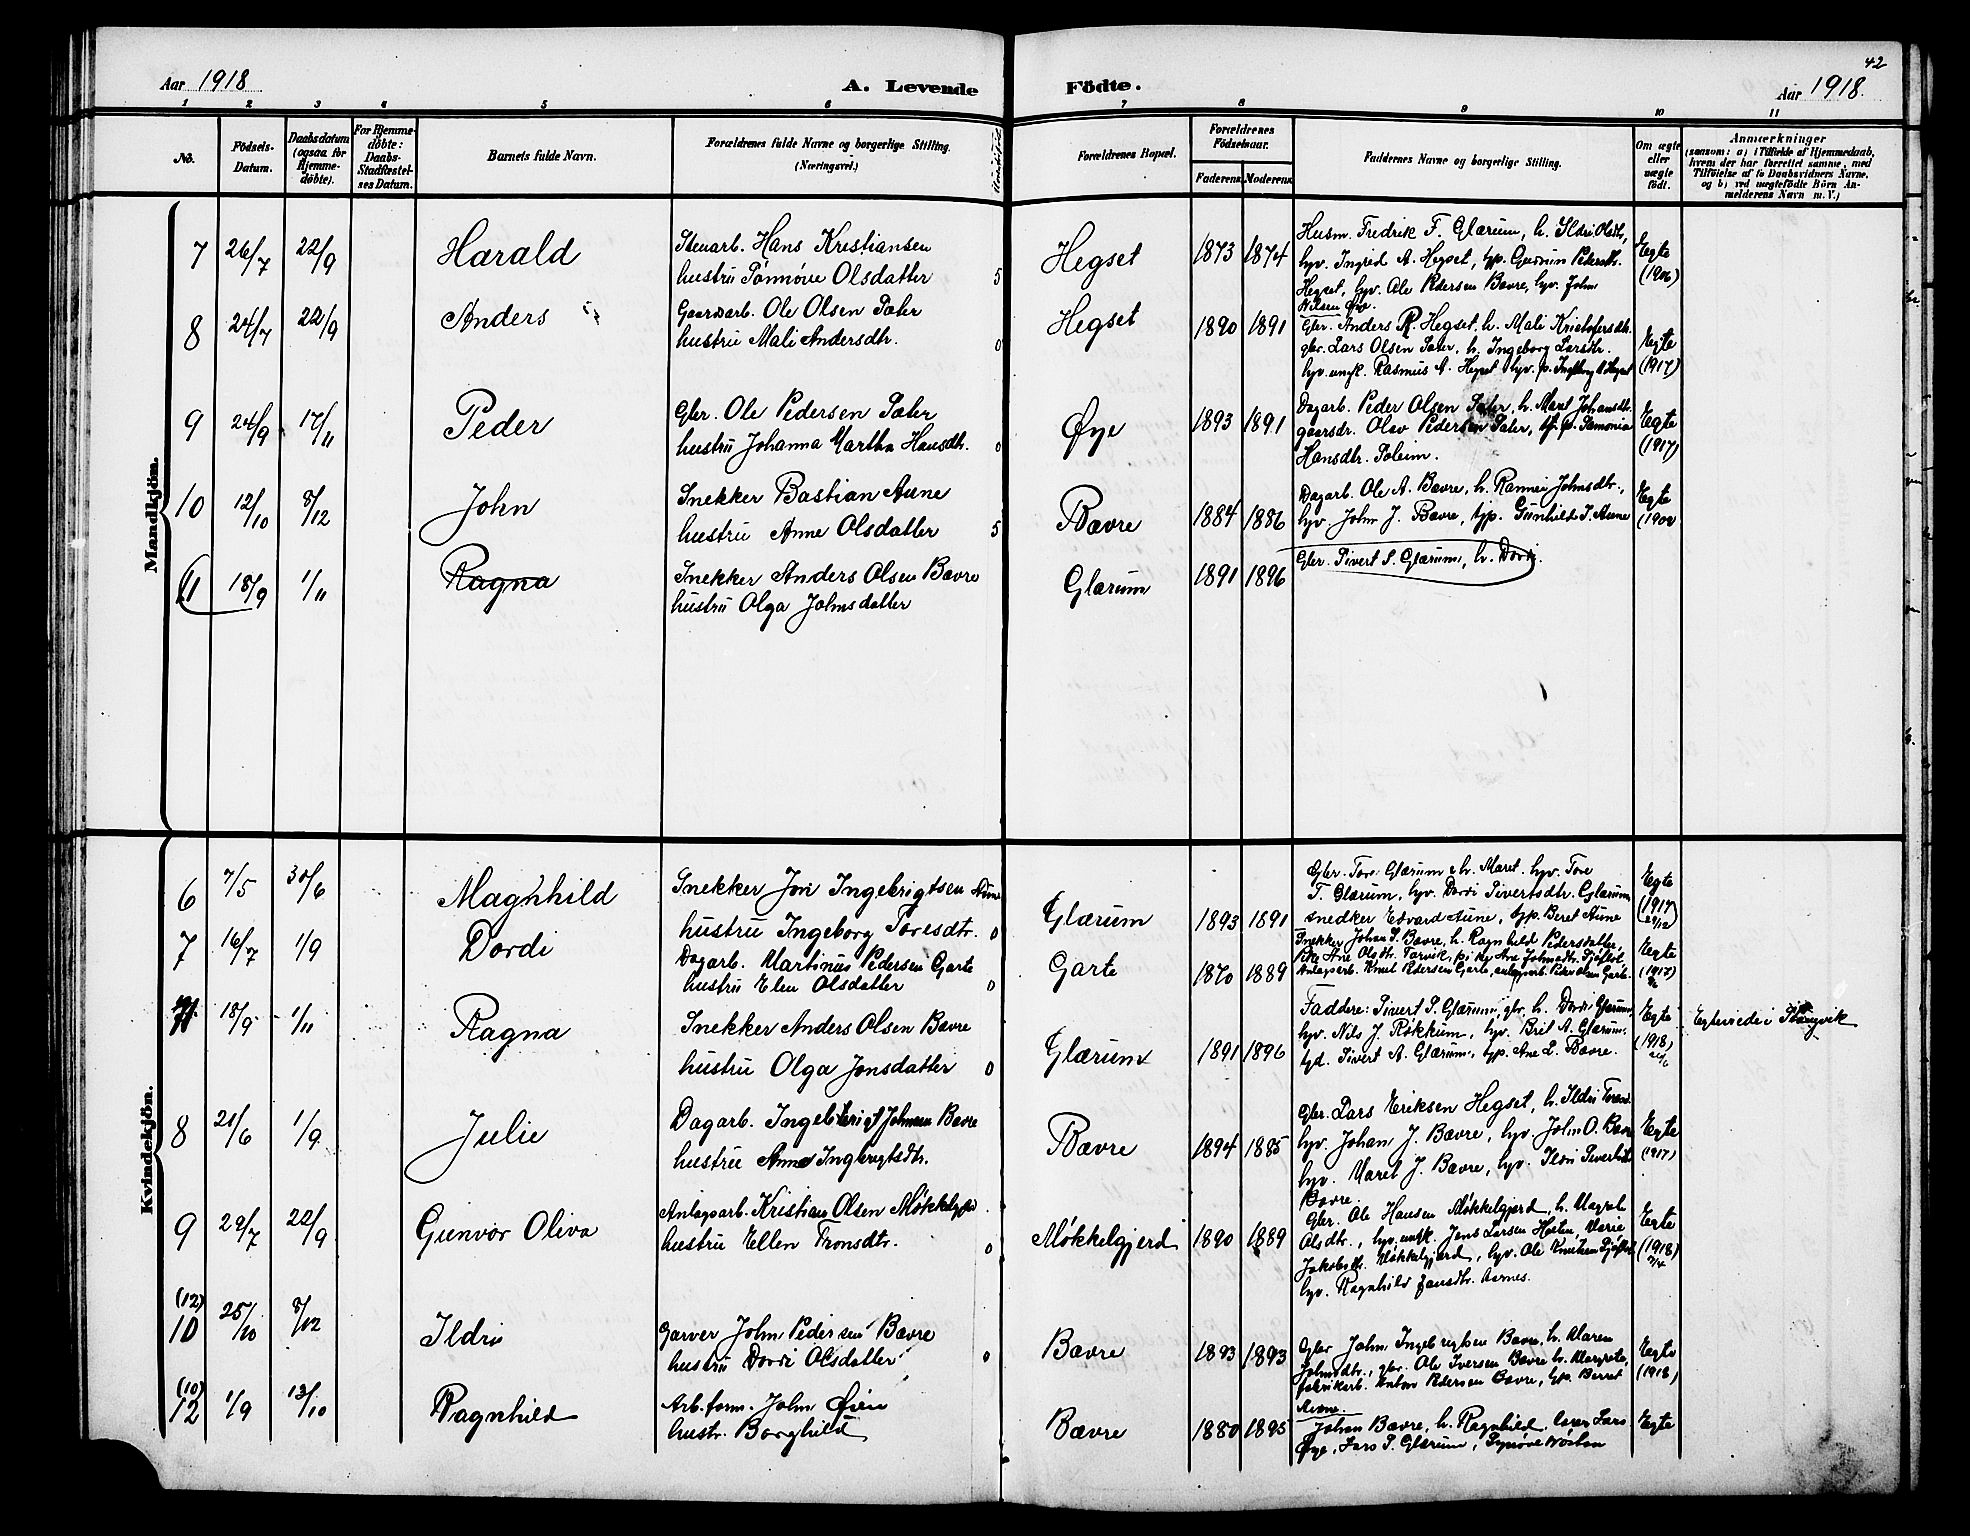 42
Aar 1918 A. Levende Födte. Aar 1918.
1 2 3 4 5 6 7 8 9 10 11
No. Födsels-Datum. Daabsdatum (ogsaa for Hjemme-döbte). For Hjemme-döbte: Daabs-Stadfæstel-ses Datum. Barnets fulde Navn. Forældrenes fulde Navne og borgerlige Stilling. (Næringsvei.) Forældrenes Bopæl. Forældrenes Födselsaar. Faderens. Moderens. Faddernes Navne og borgerlige Stilling. Om ægte eller uægte födt. Anmærkninger (saasom: a) i Tilfælde af Hjemmedaab, hvem der har forrettet samme, med Tilföielse af to Daabsvidners Navne, og b) ved uægtefödte Börn An-melderens Navn m. V.)
Mandkjön.
7 26/7 22/9 Harald Stenarb. Hans Kristiansen
hustru Sönnöve Olsdatter 5 Hegset 1873 1874 Husm. Fredrik F. Glærum, h. Ildri Olsdtr,
gv. Ingrid A. Hegset, gp. Gudrun Pedersdtr.
Hegset, gv. Ole Pedersen Bævre, gv. John
Nilsen Øye Egte (1906)
8 24/7 22/9 Anders Gaardarb. Ole Olsen Sæter
hustru Mali Andersdtr. 0 Hegset 1890 1891 Gbr. Anders R. Hegset, h. Mali Kristofersdtr.
gbr. Lars Olsen Sæter, h. Ingeborg Larsdtr.
gv. ungk. Rasmus A. Hegset Egte (1917)
9 24/9 17/11 Peder Gbr. Ole Pedersen Sæter
hustru Johanna Martha Hansdtr. 0 Øye 1893 1891 Dagarb. Peder Olsen Sæter, h. Maret Johansdtr.
gaardr. Olav Pedersen Sæter, Samonia
Hansdtr. Soleim. Egte (1917)
10 12/10 8/12 John Snekker Bastian Aune
hustru Anne Olsdatter 5 Bævre 1884 1886 Dagarb. Ole A. Bævre, h. Rannei Johnsdtr.,
gv. John J. Bævre, gp. Gunhild J. Aune Egte
11 18/9 1/11 Ragna Snekker Anders Olsen Bævre
hustru Olga Johnsdatter Glærum 1891 1896 Gbr. Sivert S. Glærum, h. Dordi.
Kvindekjön.
6 7/5 30/6 Magnhild Snekker Jon Ingebrigtsen Aune
hustru Ingeborg Toresdtr. 0 Glærum 1893 1891 Gbr. Tore Glærum & h. Maret. gv. Tore
T. Glærum, gv. Dordi Sivertsdtr. Glærum,
snedker Edvard Aune, gp. Beret Aune Egte (1917 29/12)
7 16/7 1/9 Dordi Dagarb. Martinus Pedersen Garte
hustru Elen Olsdatter 0 Garte 1870 1889 Snekker Johan S. Bævre, h. Ragnhild Pedersdatter,
Pike Ane Olsdtr. Torvik, pike Ane Johnsdtr.
Anlagsarb. Knut Pedersen Garte, anlagsarb. Peder Olsen Garte Egte
11 18/9 1/11 Ragna Snekker Anders Olsen Bævre
hustru Olga Jonsdatter 0 Glærum 1891 1896 Faddere: Sivert S. Glærum, gbr. h. Dordi Glærum,
gv. Nils J. Røkkum, gv. Brit A. Glærum.
gd. Sivert A. Glærum, gp. Ane L. Bævre. Egte (1918) Egteviede i Stangvik
8 21/6 1/9 Julie Dagarb. Ingebrigt Johnsen Bævre
hustru Anne Ingbrigtsdtr. Bævre 1894 1885 Gbr. Lars Eriksen Hegset, h. Ildri Toresd.
gv. Johan J. Bævre, gv. John O. Bævre
gv. Maret J. Bævre, gv. Ildri Sivertsdtr.
Bævre. Egte (1917)
9 29/7 22/9 Gunvor Oliva Anlagsarb. Kristian Olsen Møkkelgjerd
hustru Ellen Tronsdtr. 0 Møkkelgjerd 1890 1889 Gbr. Ole Hansen Møkkelgjerd, h. Magret
Olsdtr., gv. ungk. Jens Larsen Holten, Marie
Jakobsdtr. Møkkelgjerd, gv. Ole Knutsen
gv. Ragnhild Jansdtr. Aarnes. Egte (1918)
(12)
10 25/10 8/12 Ildri Garver John Pedersen Bævre
hustru Dordi Olsdatter 0 Bævre 1893 1893 Gbr John Ingebrigtsen Bævre, h. Maren
Johnsdtr., gbr. Ole Iversen Bævre h. Margrete,
fabrikarb. Anton Pedersen Bævre, gp. Berret
Aune. Egte (1918)
(10)
12 1/9 13/10 Ragnhild Arb.form. John Øien
hustr. Borghild Bævre 1880 1895 Johan Bævre, h. Ragnhild, lærer Lars
Øye, Lars S. Glærum, Synøve Egte